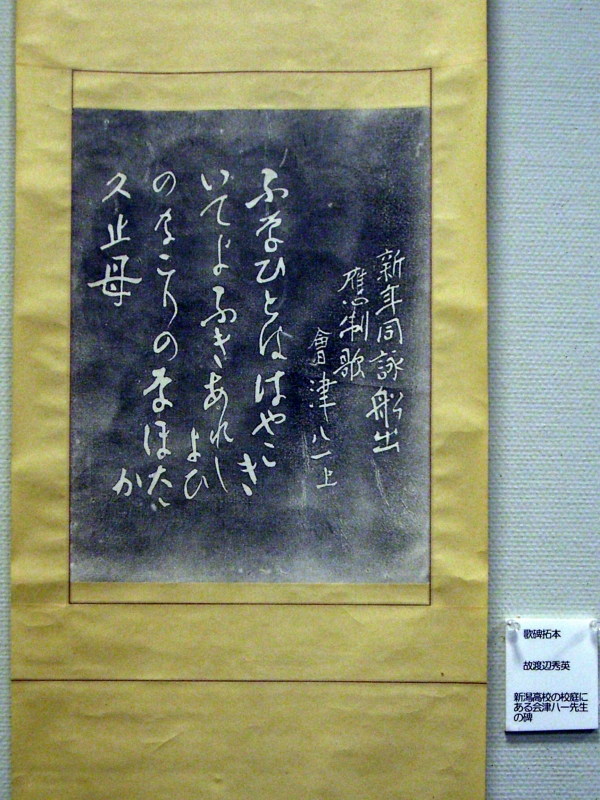 新年同詠船出
應制歌
會津八一上
ふなひとははやこき
いてよふきあれしよひ
のなこりのなほたか
久止母
歌碑拓本
故渡辺秀英
新潟高校の校庭に
ある会津八一先生
の碑